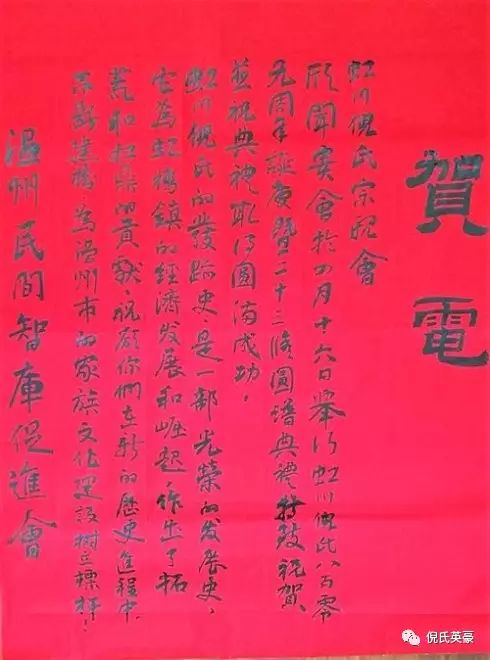 賀電
虹川倪氏宗親會
欣聞宗會於四月十六日舉行虹川倪氏八百零
九周年誕庚暨二十三修圓譜典禮特致祝賀
並祝典禮取得圓滿成功，
虹川倪氏的發跡史是一部光榮的发展史，
它為虹橋鎮的經濟发展和崛起，作出了拓
荒和扛鼎的貢献，祝願你們在新的歷史進程中，
為溫州市的家族文化建設樹立標桿，
温州民間智庫促進會
倪氏英豪